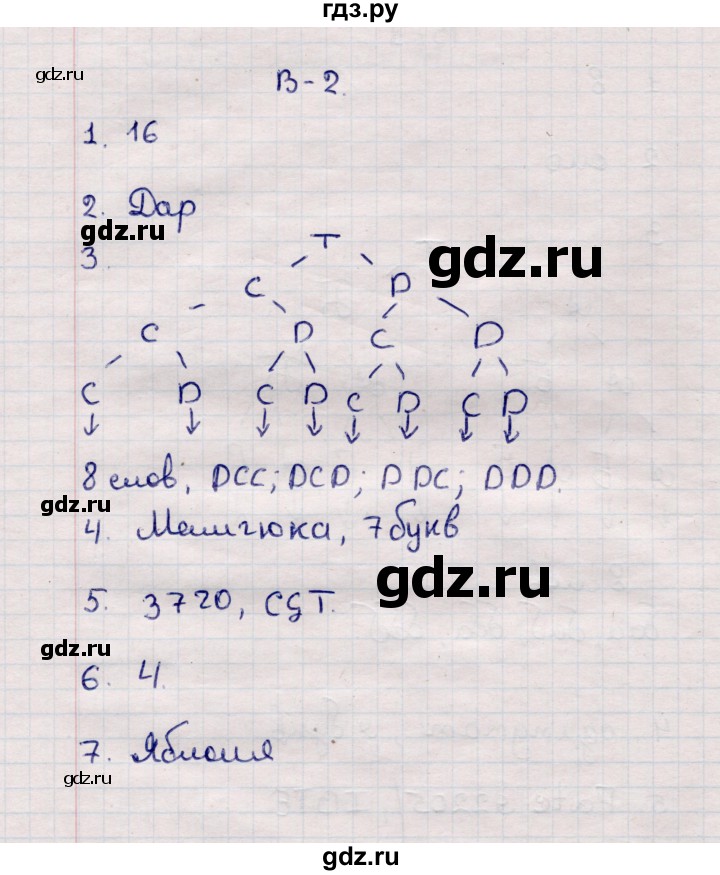 гдз.ру
gdz.ru
В-2.
1. 16
2. Дар
gdz.ru
3
Т
gdz.ru
С D
С D С D
С D С D С D С D
8 слов; DCC; DCD; DDC; DDD.
gdz.ru
4. , 7 букв
gdz.ru
5. 3720, CGT.
gdz.ru
6. 4.
7. Яблоня
gdz.ru
gdz.ru